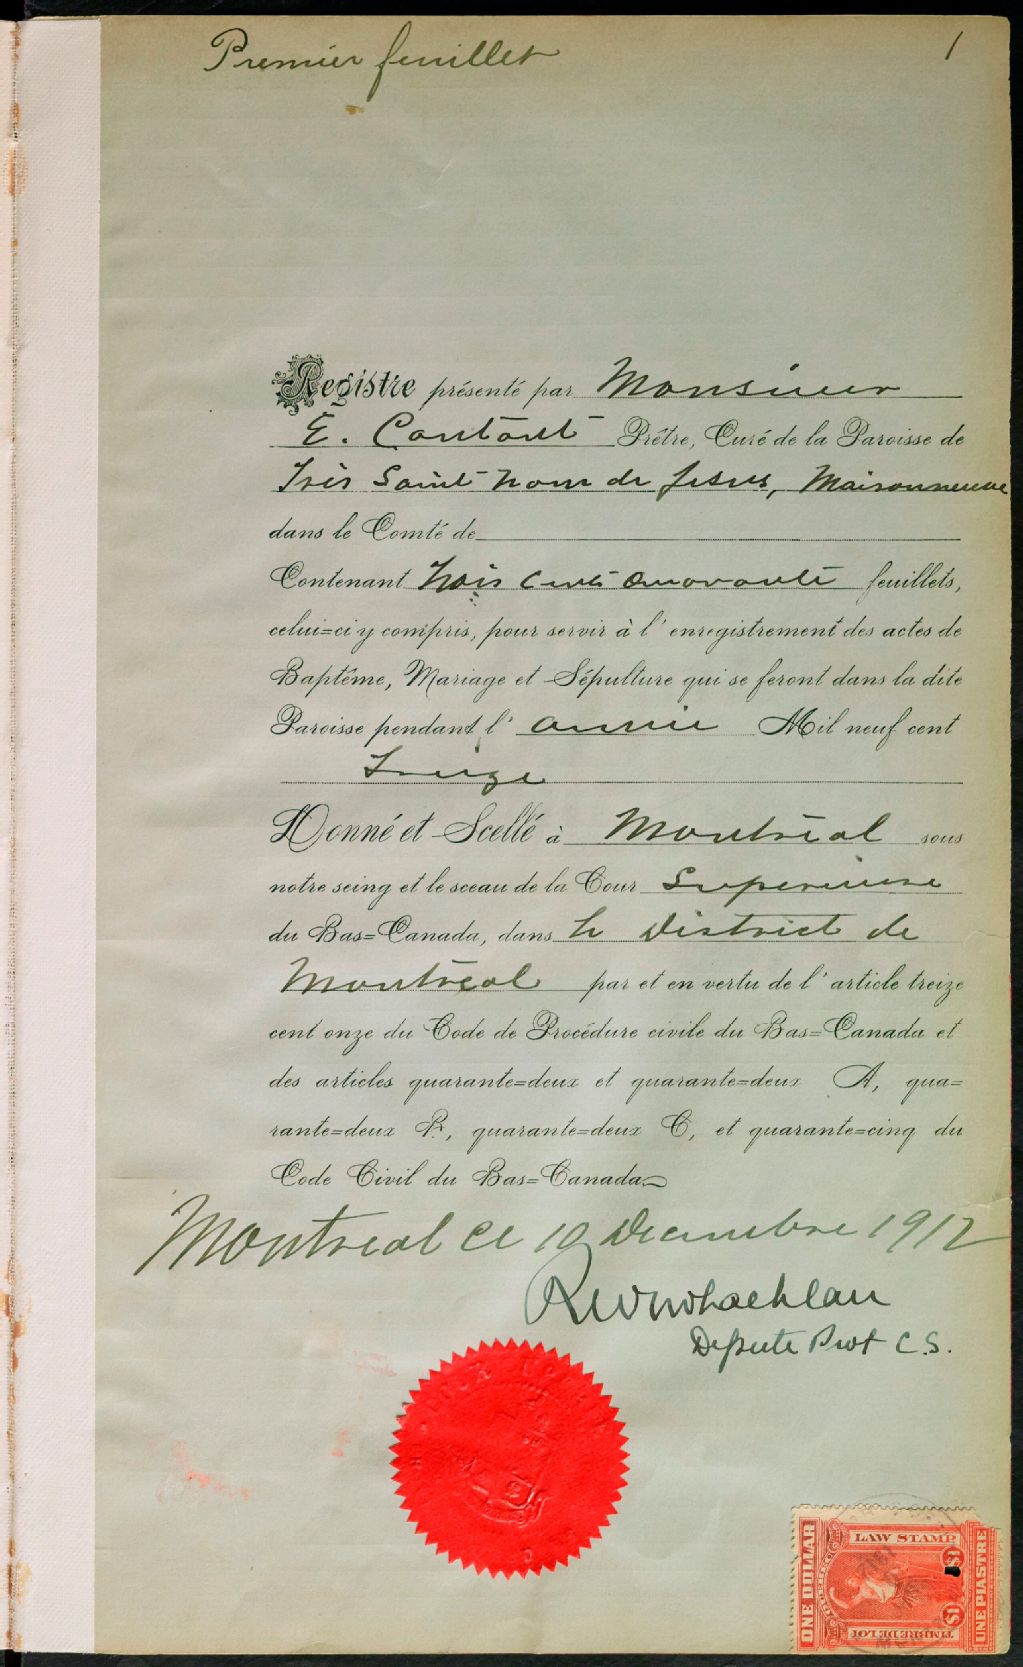 Premier feuillet
1
Registre présenté par Monsieur
E. Contant Prêtre, Curé de la Paroisse de
Très Saint Nom de Jésus, Maisonneuve
dans le Comté de
Contenant trois cent quarante feuillets,
celui=ci y compris, pour servir à l'enregistrement des actes de
Baptême, Mariage et Sépulture qui se feront dans la dite
Paroisse pendant l'année Mil neuf cent
Treize
Donné et Scellé à Montréal sous
notre seing et le sceau de la Cour Superieure
du Bas=Canada, dans le District de
Montréal par et en vertu de l'article treize
cent onze du Code de Procédure civile du Bas=Canada et
des articles quarante=deux et quarante=deux A, qua=
rante=deux B, quarante=deux C, et quarante=cinq du
Code Civil du Bas=Canada
Montreal ce 19 Decembre 1912
Depute Prot C.S.
ONE DOLLAR
LAW STAMP
$1
$1
TIMBRE DE LOI
UNE PIASTRE